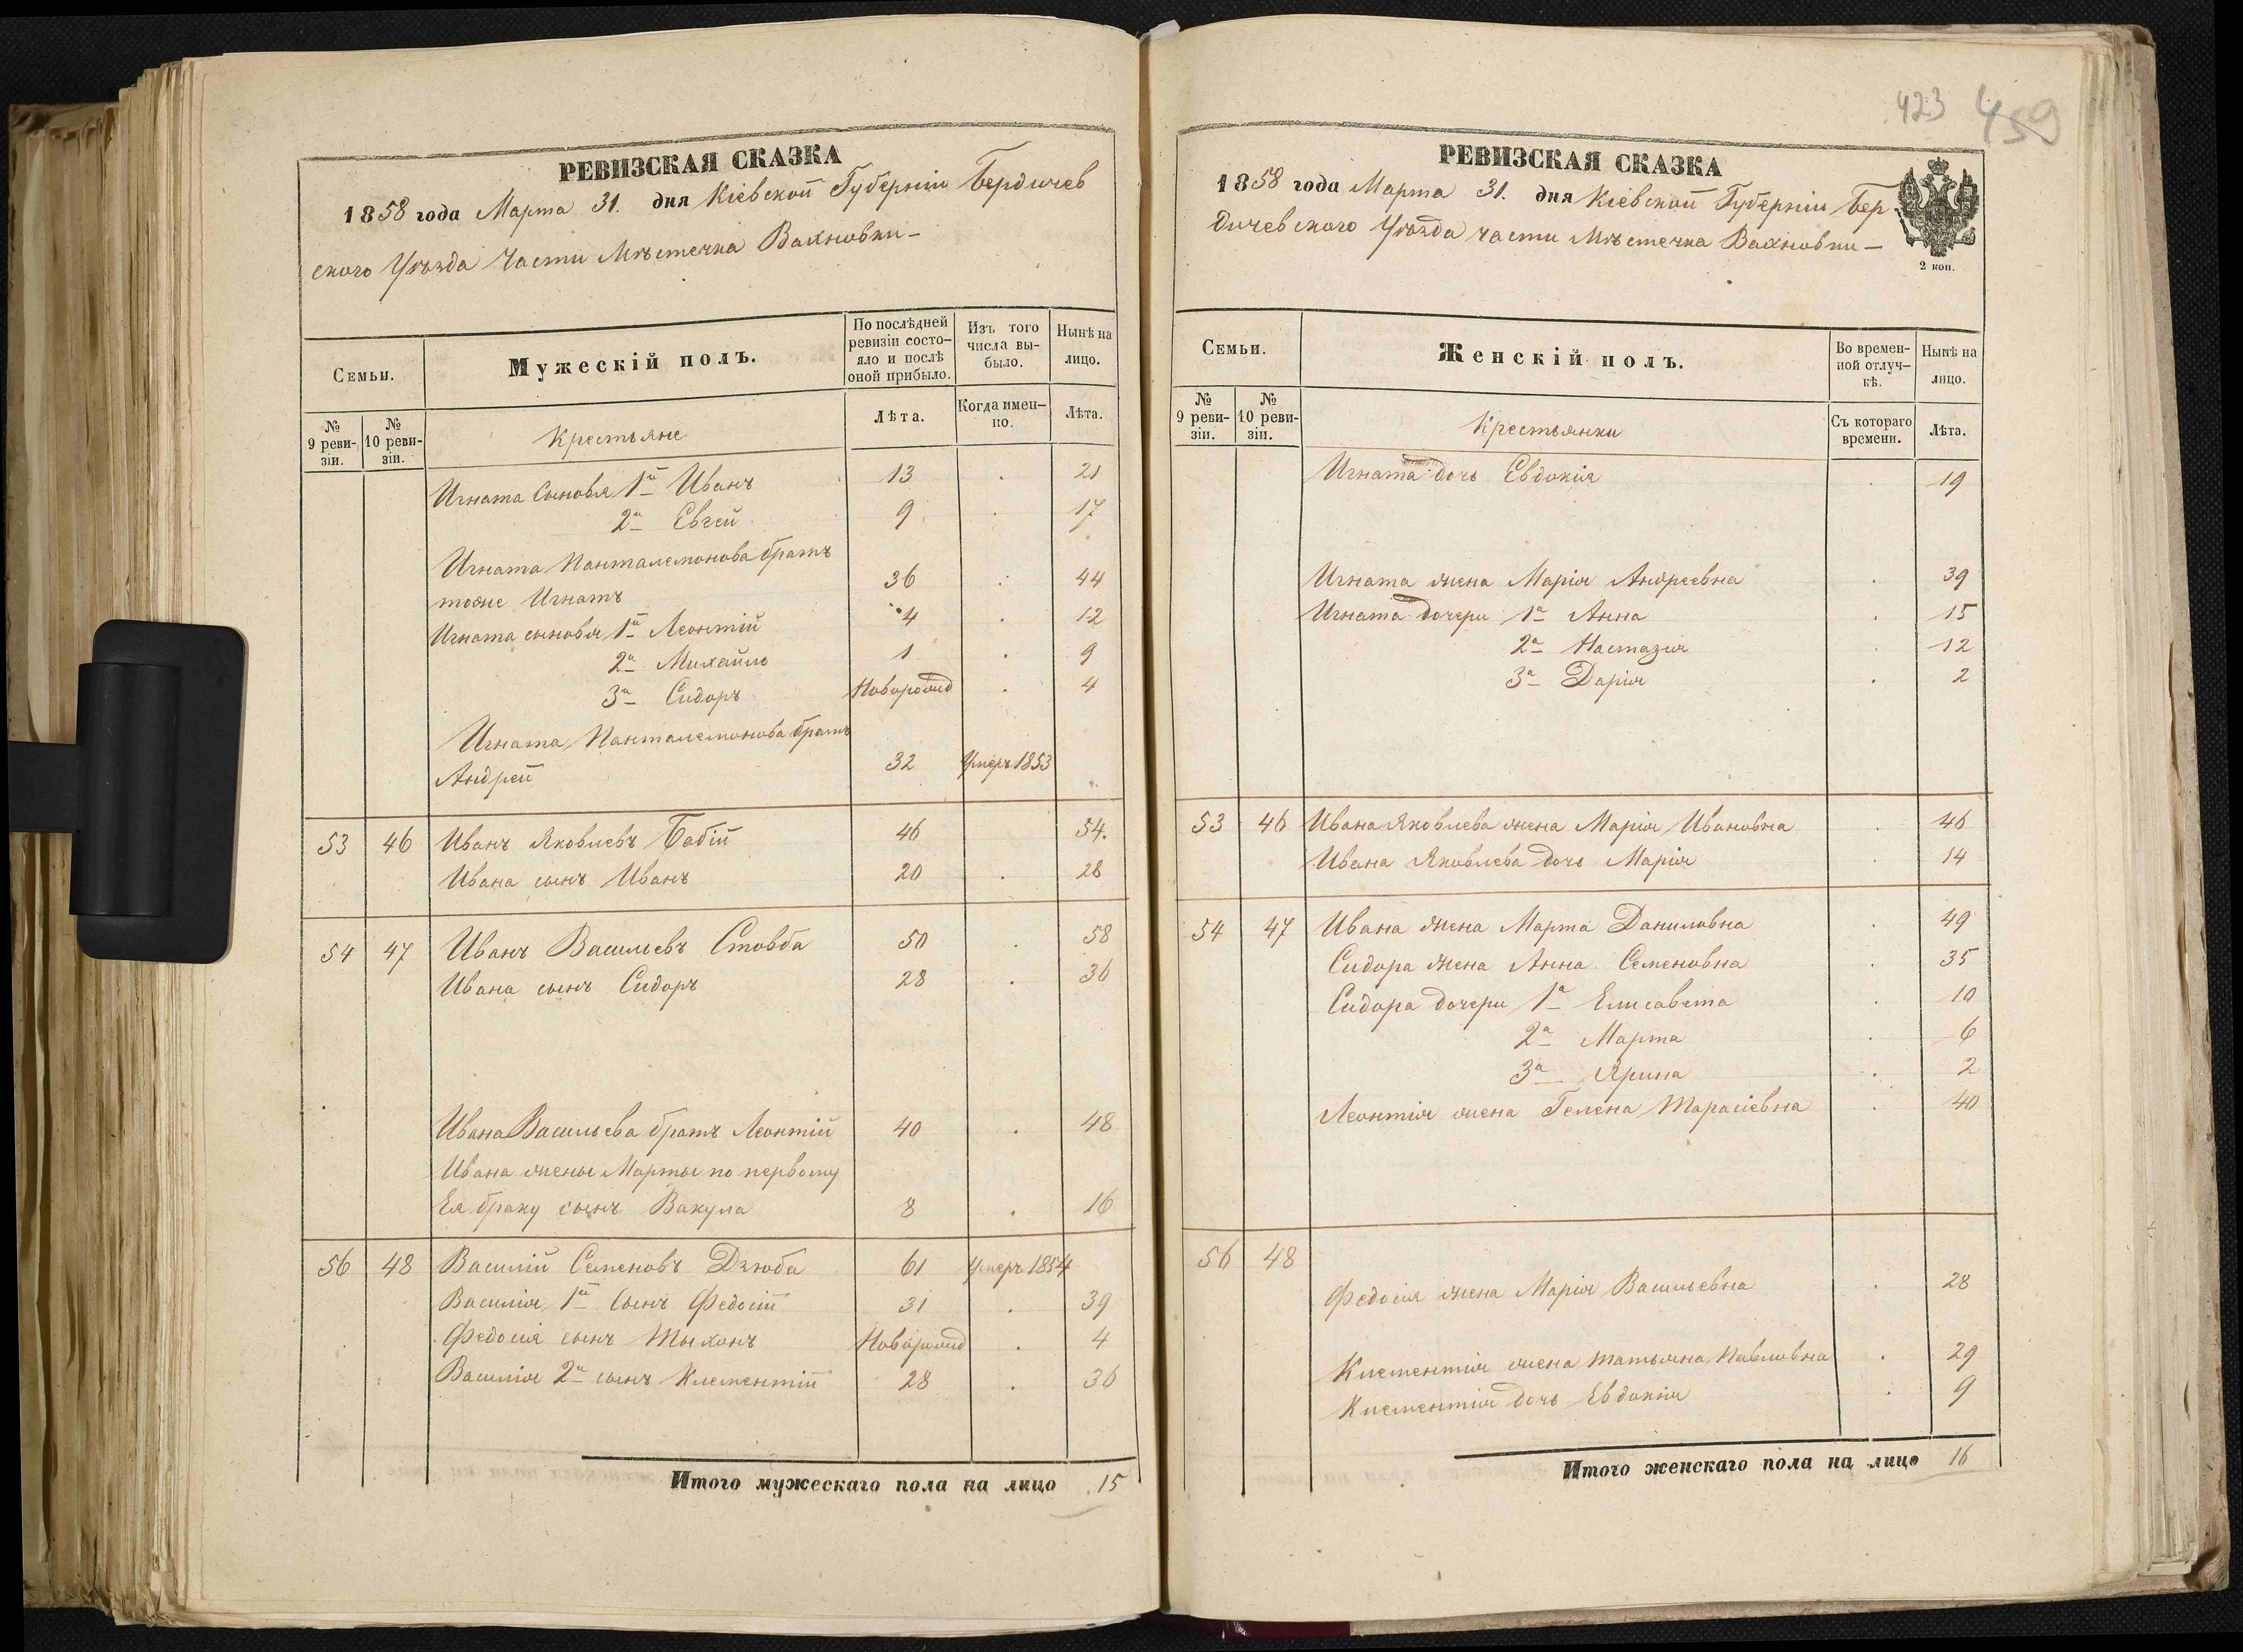 РЕВИЗСКАЯ СКАЗКА
1858 года Марта 31. дня Кіевской Губерніи Бердичев
ского Уѣзда Части Мѣстечка Вахновки-
Семьи.
Мужескій полъ.
По послѣдней ревизіи состо-яло и послѣ оной прибыло.
Изъ того числа вы-было.
Нынѣ на лицо.
№ 9 реви-зіи.
№ 10 реви-зіи.
Крестьяне
Лѣта.
Когда имен-но.
Лѣта.
Игната Сыновья 1й Иванъ 13 . 21
2й Евгей 9 . 17
Игната Панталемонова братъ
тоже Игнатъ 36 . 44
Игната сыновья 1й Леонтій 4 . 12
2й Михайло 1 . 9
3й Сидоръ Наворожд . 4
Игната Панталемонова братъ
Андрей 32 Умеръ 1853
53 46 Иванъ Яковлевъ Бабій 46 54.
Ивана сынъ Иванъ 20 . 28
54 47 Иванъ Васильевъ Стовба 50 . 58
Ивана сынъ Сидоръ 28 . 36
Ивана Васильева братъ Леонтій 40 . 48
Ивана жены Марты по первому
Ея браку сынъ Вакула 8 . 16
56 48 Василій Семеновъ Дзюба 61 Умеръ 1854
Василія 1й Сынъ Федосій 31 . 39
Федосія сынъ Тыхонъ Наворожд . 4
Василія 2й сынъ Климентій 28 . 36
Итого мужескаго пола на лицо 15
423 459
РЕВИЗСКАЯ СКАЗКА
1858 года Марта 31. дня Кіевской Губерніи Бер
дичевского Уѣзда части Мѣстечка Вахновки-
2 коп.
Семьи.
Женскій полъ.
Во времен-ной отлуч-кѣ.
Нынѣ на лицо.
№ 9 реви-зіи.
№ 10 реви-зіи.
Крестьянки
Съ котораго времени.
Лѣта.
Игната дочь Евдокія . 19
Игната жена Марія Андреевна . 39
Игната дочери 1а Анна . 15
2а Настазия . 12
3а Дарія . 2
53 46 Ивана Яковлева жена Марія Ивановна . 46
Ивана Яковлева дочь Марія . 14
54 47 Ивана жена Марта Даниловна . 49
Сидора жена Анна Семеновна . 35
Сидора дочери 1а Елисавета . 10
2а Марта . 6
3а Ярина . 2
Леонтія жена Гелена Тарасіевна . 40
56 48
Федосія жена Марія Васильевна . 28
Климентія жена татьяна Павловна . 29
Климентія дочь Евдокія . 9
Итого женскаго пола на лицо 16